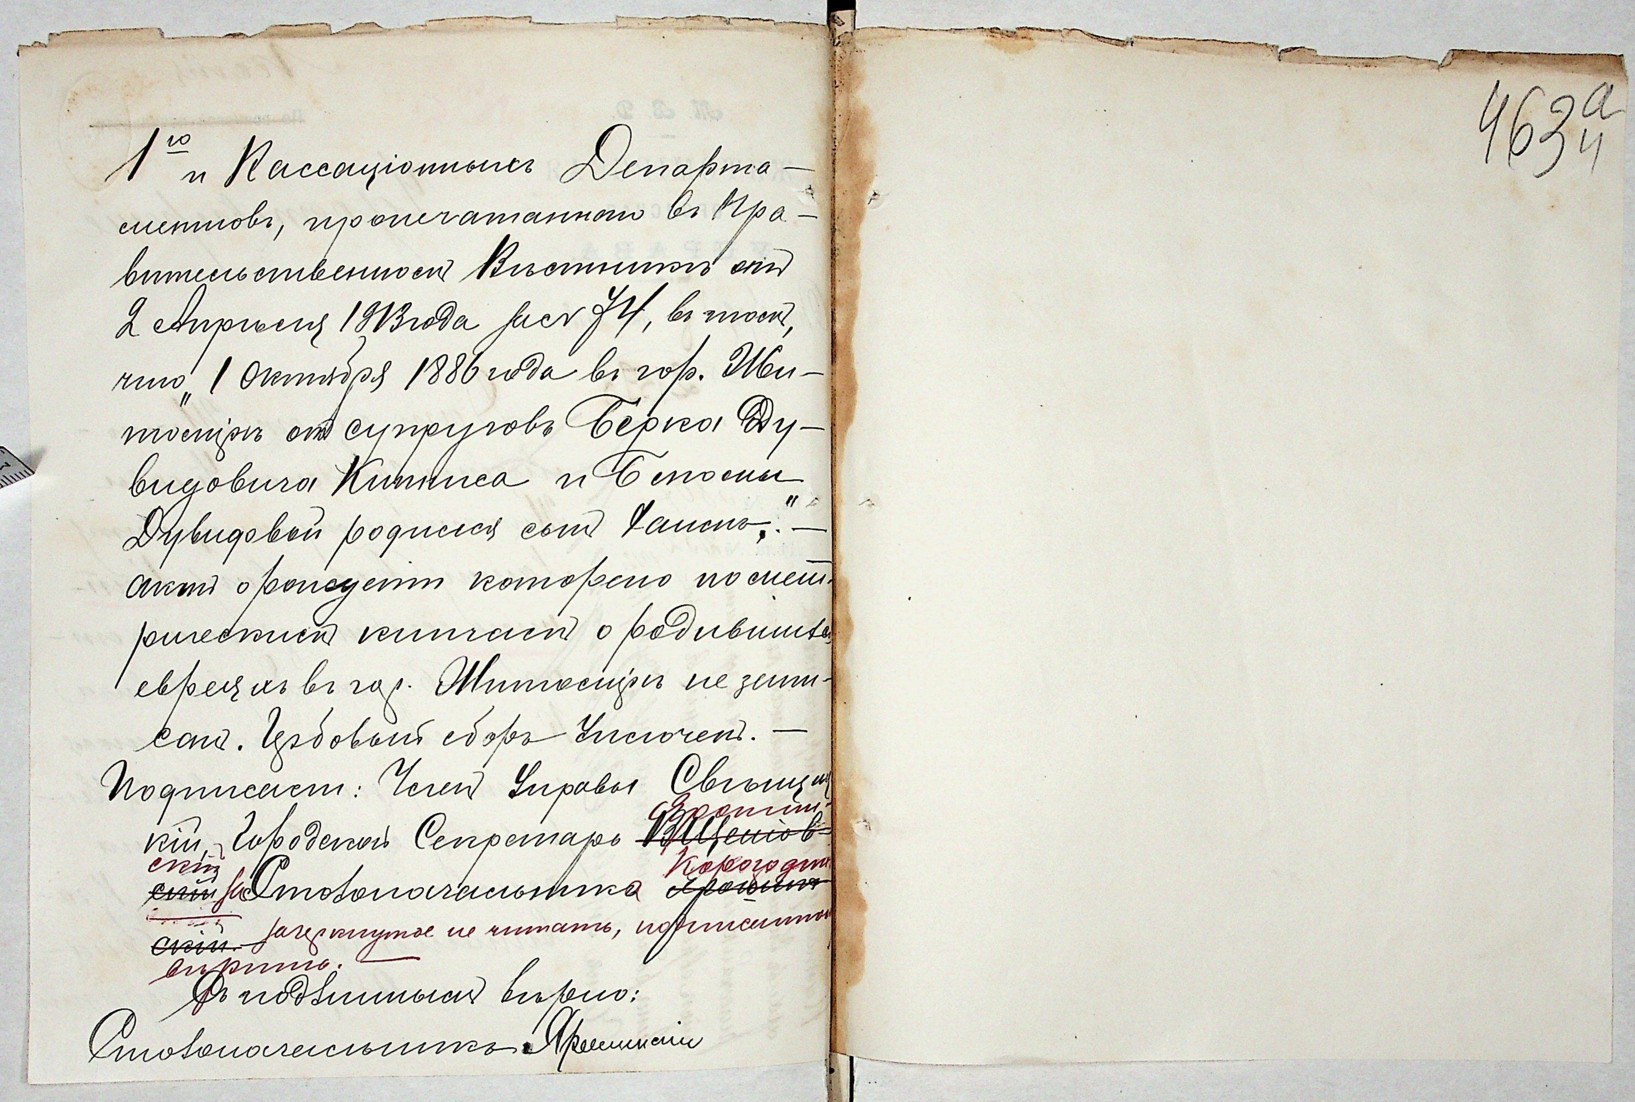 1го и Кассаціонныхъ Департа-
ментовъ, пропечатанном въ Пра-
вительственномъ Вѣстникѣ отъ
2 Апрѣля 1913 года за № 74, въ томъ,
что „1 Октября 1886 года въ гор. Жи-
томирѣ отъ супруговъ Берка Ду-
видовича Кипниса и
Дувидовой родился сынъ “—
актъ о рожденіи котораго по мет-
рическимъ книгамъ о родившихся
евреяхъ въ гор. Житомирѣ не запи-
санъ. Гербовый сборъ уплоченъ. —
Подписали: Членъ Управы Свѣнциц-
кій, Городской Секретарь
скій
за Столоначальника
скій зачеркнутое не читать, надписанное
вѣрить.
Съ подлиннымъ вѣрно:
Столоначальникъ
463а
ч